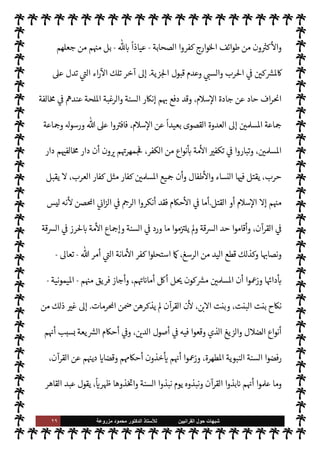 والأكثرون من طوائف الخوارج كفروا الصحابة - عياذاً بالله - بل منهم من جعلهم
كالمشركين في الحرب والسبي وعدم قبول الجزية. إلى آخر تلك الآراء التي تدل على
انحراف حاد عن جادة الإسلام، وقد دفع بهم إنكار السنة والرغبة الملحة عندهم في مخالفة
جماعة المسلمين إلى العدوة القصوى بعيداً عن الإسلام. فافتروا على الله ورسوله وجماعة
المسلمين، وتباروا في تكفير الأمة بأنواع من الكفر، فجمهرتهم يرون أن دار مخالفيهم دار
حرب، يقتل فيها النساء والأطفال وأن جميع المسلمين كفار مثل كفار العرب، لا يقبل
منهم إلا الإسلام أو القتل.أما في الأحكام فقد أنكروا الرجم في الزاني المحصن لأنه ليس
في القرآن، وأقاموا حد السرقة ولم يلتزموا ما ورد في السنة وإجماع الأمة بالحرز في السرقة
ونصابها وكذلك قطع اليد من الرسغ، كما استحلوا كفر الأمانة التي أمر الله - تعالى -
بأدائها وزعموا أن المسلمين مشركون يحل أكل أماناتهم، وأجاز فريق منهم - الميمونية -
نكاح بنت البنت، وبنت الابن، لأن القرآن لم يذكرهن ضمن المحرمات. إلى غير ذلك من
أنواع الضلال والزيغ الذي وقعوا فيه في أصول الدين، وفي أحكام الشريعة بسبب أنهم
رفضوا السنة النبوية المطهرة، وزعموا أنهم يأخذون أحكامهم وقضايا دينهم عن القرآن،
وما علموا أنهم نابذوا القرآن ونبذوه يوم نبذوا السنة واتخذوها ظهرياً، يقول عبد القاهر
شبهات حول القرآنيين للأستاذ الدكتور محمود مزروعة ٢٩